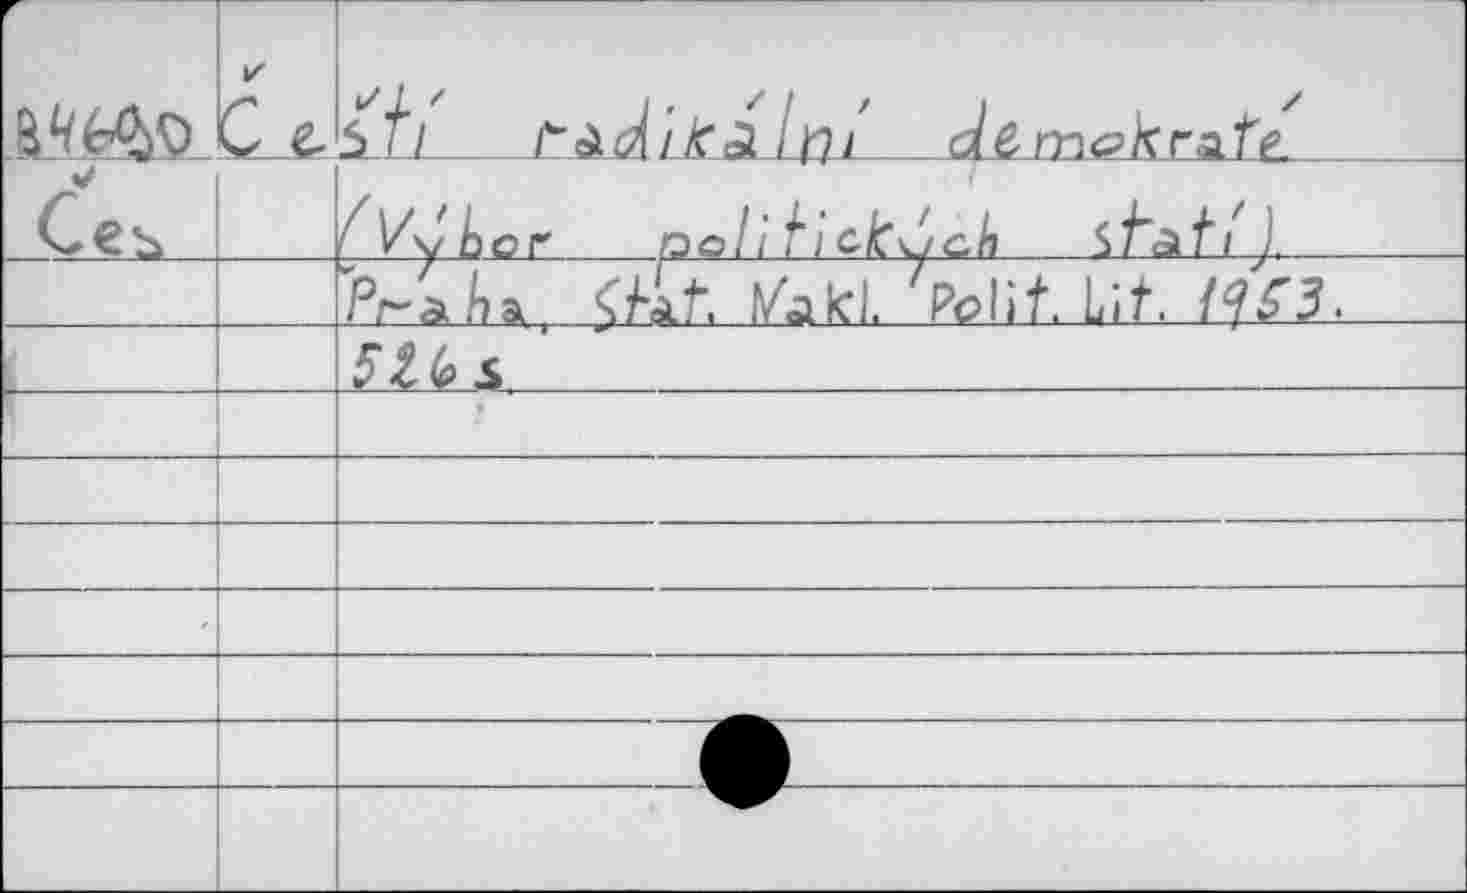 Čeští radikální demokraté
Čes (Výbor politických statí).
Praha, Stát. Nakl. Polit. Lit. 1953.
526 s.